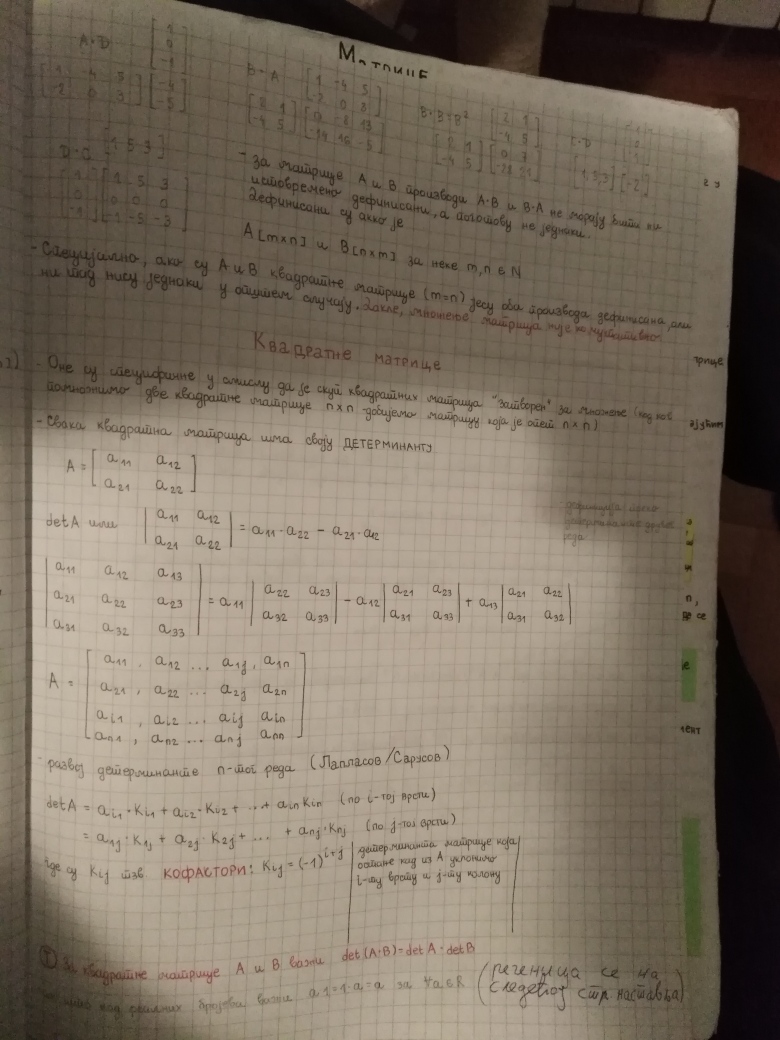 Матрице
A·D
[2
0
-1]
[1 -4 5
-2 0 3] [-4
-5]
B·A
[1 -4 5
-2 0 3]
[2 1
-4 5] [0 -8 13
-14 16 -5]
B·B=B²
[2 1
-4 5]
[2 1
-4 5] [0 7
-28 21]
C·D
[1 5 3] [-2]
D·C
[1 5 3]
[1
0
-1] [1 5 3
0 0 0
-1 -5 -3]
- за матрице A и B производи A·B и B·A не морају бити ни
истовремено дефинисани, а поготову не једнаки.
Дефинисани су акко је
A[m×n] и B[n×m] за неке m,n ∈ N
- Специјално, ако су A и B квадратне матрице (m=n) јесу оба производа дефинисана, али
ни тад нису једнаки у општем случају. Дакле, множење матрица није комутативно
Квадратне матрице
- Оне су специфичне у смислу да је скуп квадратних матрица "затворен" за множење (кад
помножимо две квадратне матрице n×n добијемо матрицу која је опет n×n)
- Свака квадратна матрица има своју ДЕТЕРМИНАНТУ
A = [a11 a12
a21 a22]
дефиниција
детерминанте другог
реда
detA или |a11 a12
a21 a22| = a11·a22 - a21·a12
|a11 a12 a13
a21 a22 a23
a31 a32 a33| = a11 |a22 a23
a32 a33| - a12 |a21 a23
a31 a33| + a13 |a21 a22
a31 a32|
A = [a11 , a12 ... a1j , a1n
a21 , a22 ... a2j a2n
ai1 , ai2 ... aij ain
an1 , an2 ... anj ann]
- развој детерминанте n-тог реда (Лапласов/Сарусов)
detA = ai1·Ki1 + ai2·Ki2 + ... + ain Kin (по i-тој врсти)
= a1j·K1j + a2j·K2j + ... + anj·Knj (по j-тој врсти)
где су Kij тзв. КОФАСТОРИ: Kij = (-1)^i+j |детерминанта матрице која
остане кад из A уклонимо
i-ту врсту и j-ту колону|
① За квадратне матрице A и B важи det(A·B)=detA·detB
као код реалних бројева важи a·1=1·a=a за ∀a∈R (реченица се на
следећој стр. наставља)
трице